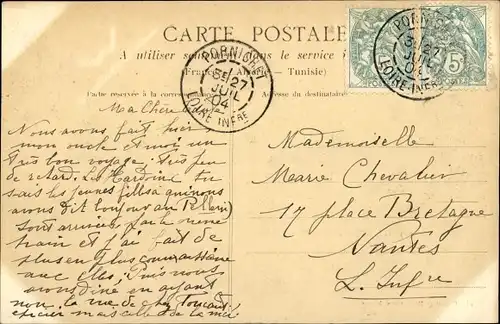 CARTE POSTALE
A utiliser seulement dans le service i
(France, Algérie - Tunisie)
Carte réservée à la correspondance
Adresse du destinataire
PORNICHET
3E/27
JUIL
04
LOIRE INFRE
PORNICHET
3E/27
JUIL
04
LOIRE INFRE
5
Ma Chère
Nous avons fait hier,
mon oncle et moi un
très bon voyage. Très peu
de retard. La Hardine tu
sais les jeunes filles à qui nous
avons dit bonjour au Pellerin
sont arrivées par le même
train et j'ai fait de
plus en plus connaissance
avec elles. Puis nous
avons dîné en ayant
non, la vue de chez
épicier mais celle de la mer
Mademoiselle
Marie Chevalier
17 place Bretagne
Nantes
L. Infre